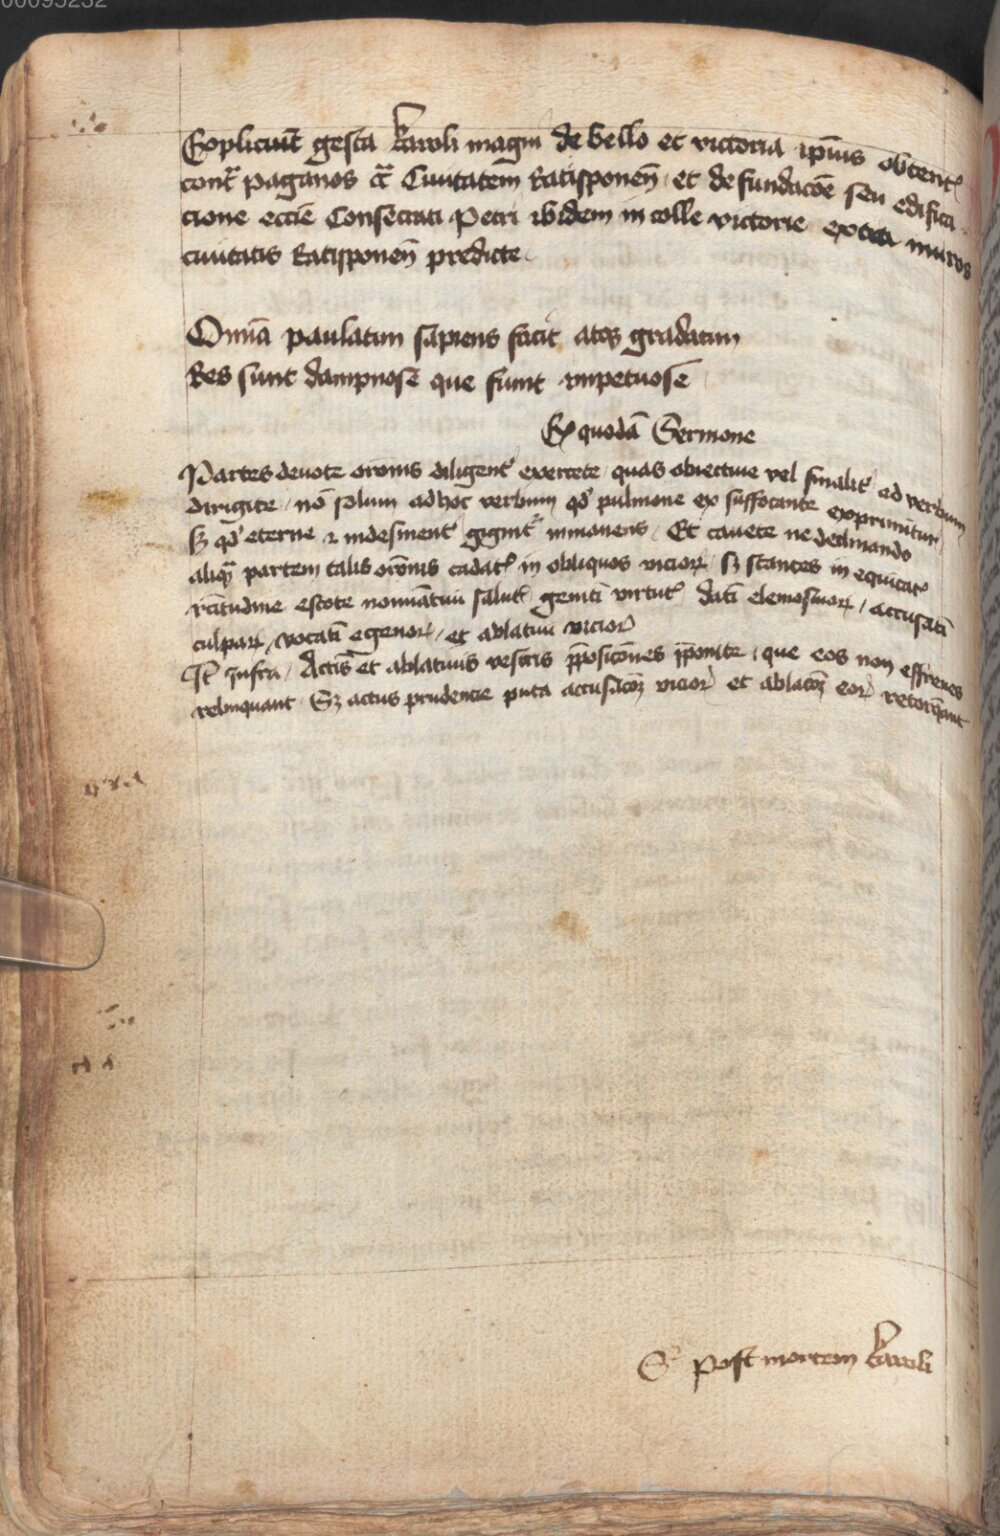 00095232
Expliciut̄ gesta karoli magni de bello et victoria ip̄ius obtent᷑
cont᷑ paganos ct᷑ Ciuitatem Ratisponen̄ et de fundac̄oe seu edifica
cione eccīe Consecrati Petri ibidem in colle victorie extra muros
ciuitatis Ratisponen̄ predicte
Om̄ia paulatim sapiens facit atqꝫ gradatim
Res sunt dampnose que fiunt impetuose
Ex quodā Sermone
Partes deuote or̄onis diligent᷑ exercete quas obiectiue vel finalit᷑ ad verbum
dirigite / nō solum ad hoc verbum qd᷑ pulmone ex suffocante exprimitur
sꝫ qd᷑ eterne ⁊ indesinent᷑ gignit᷑ inmanens / Et cauete ne declinando
aliqͣ partem talis or̄onis cadat᷑ in obliquos vicioꝝ sꝫ stantes in equitat᷑
rc̄itudine estote nominatiui salut᷑ geniti virtut᷑ dati elemosinaꝝ / accusati
culpaꝝ / vocati egenoꝝ / et ablatiui vicioꝝ
It᷑ infra / Actis et ablatiuis vestris p̄posic̄ones p̄ponite / que eos non effrenes
relinquant Sꝫ actus prudencie puta accusac̄oꝫ vicioꝝ et ablac̄oꝫ eoꝝ retorq̄ant
post mortem karoli